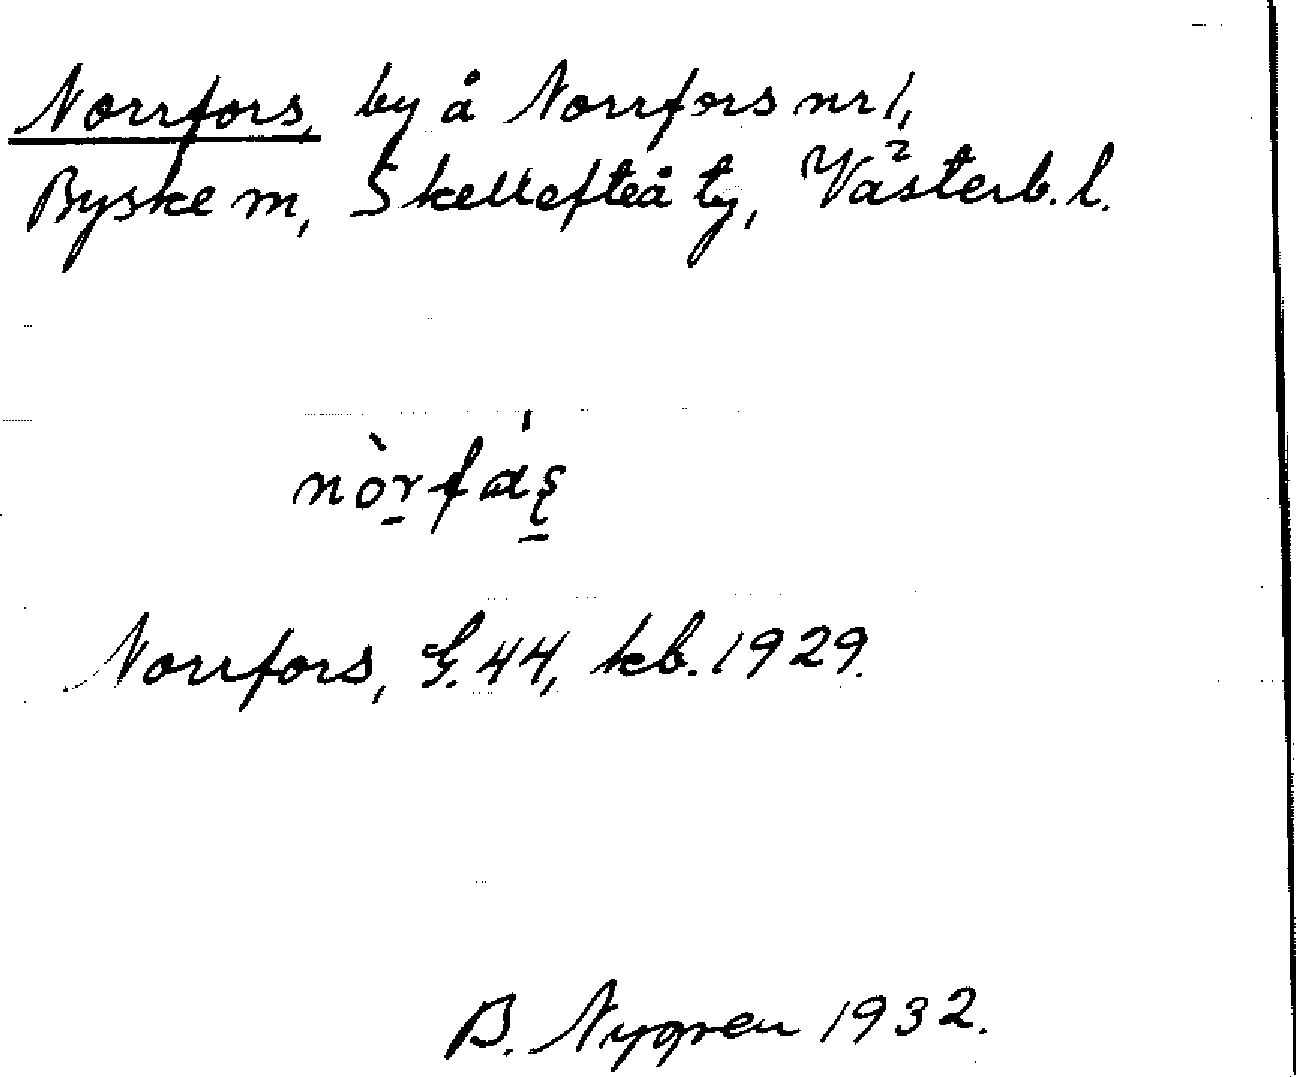 Norrfors, by å Norrfors nr 1,
Byske sn, Skellefteå tg, Västerb. l.
nòrfás̠
Norrfors, G. 44, kb. 1929.
B. Nygren 1932.